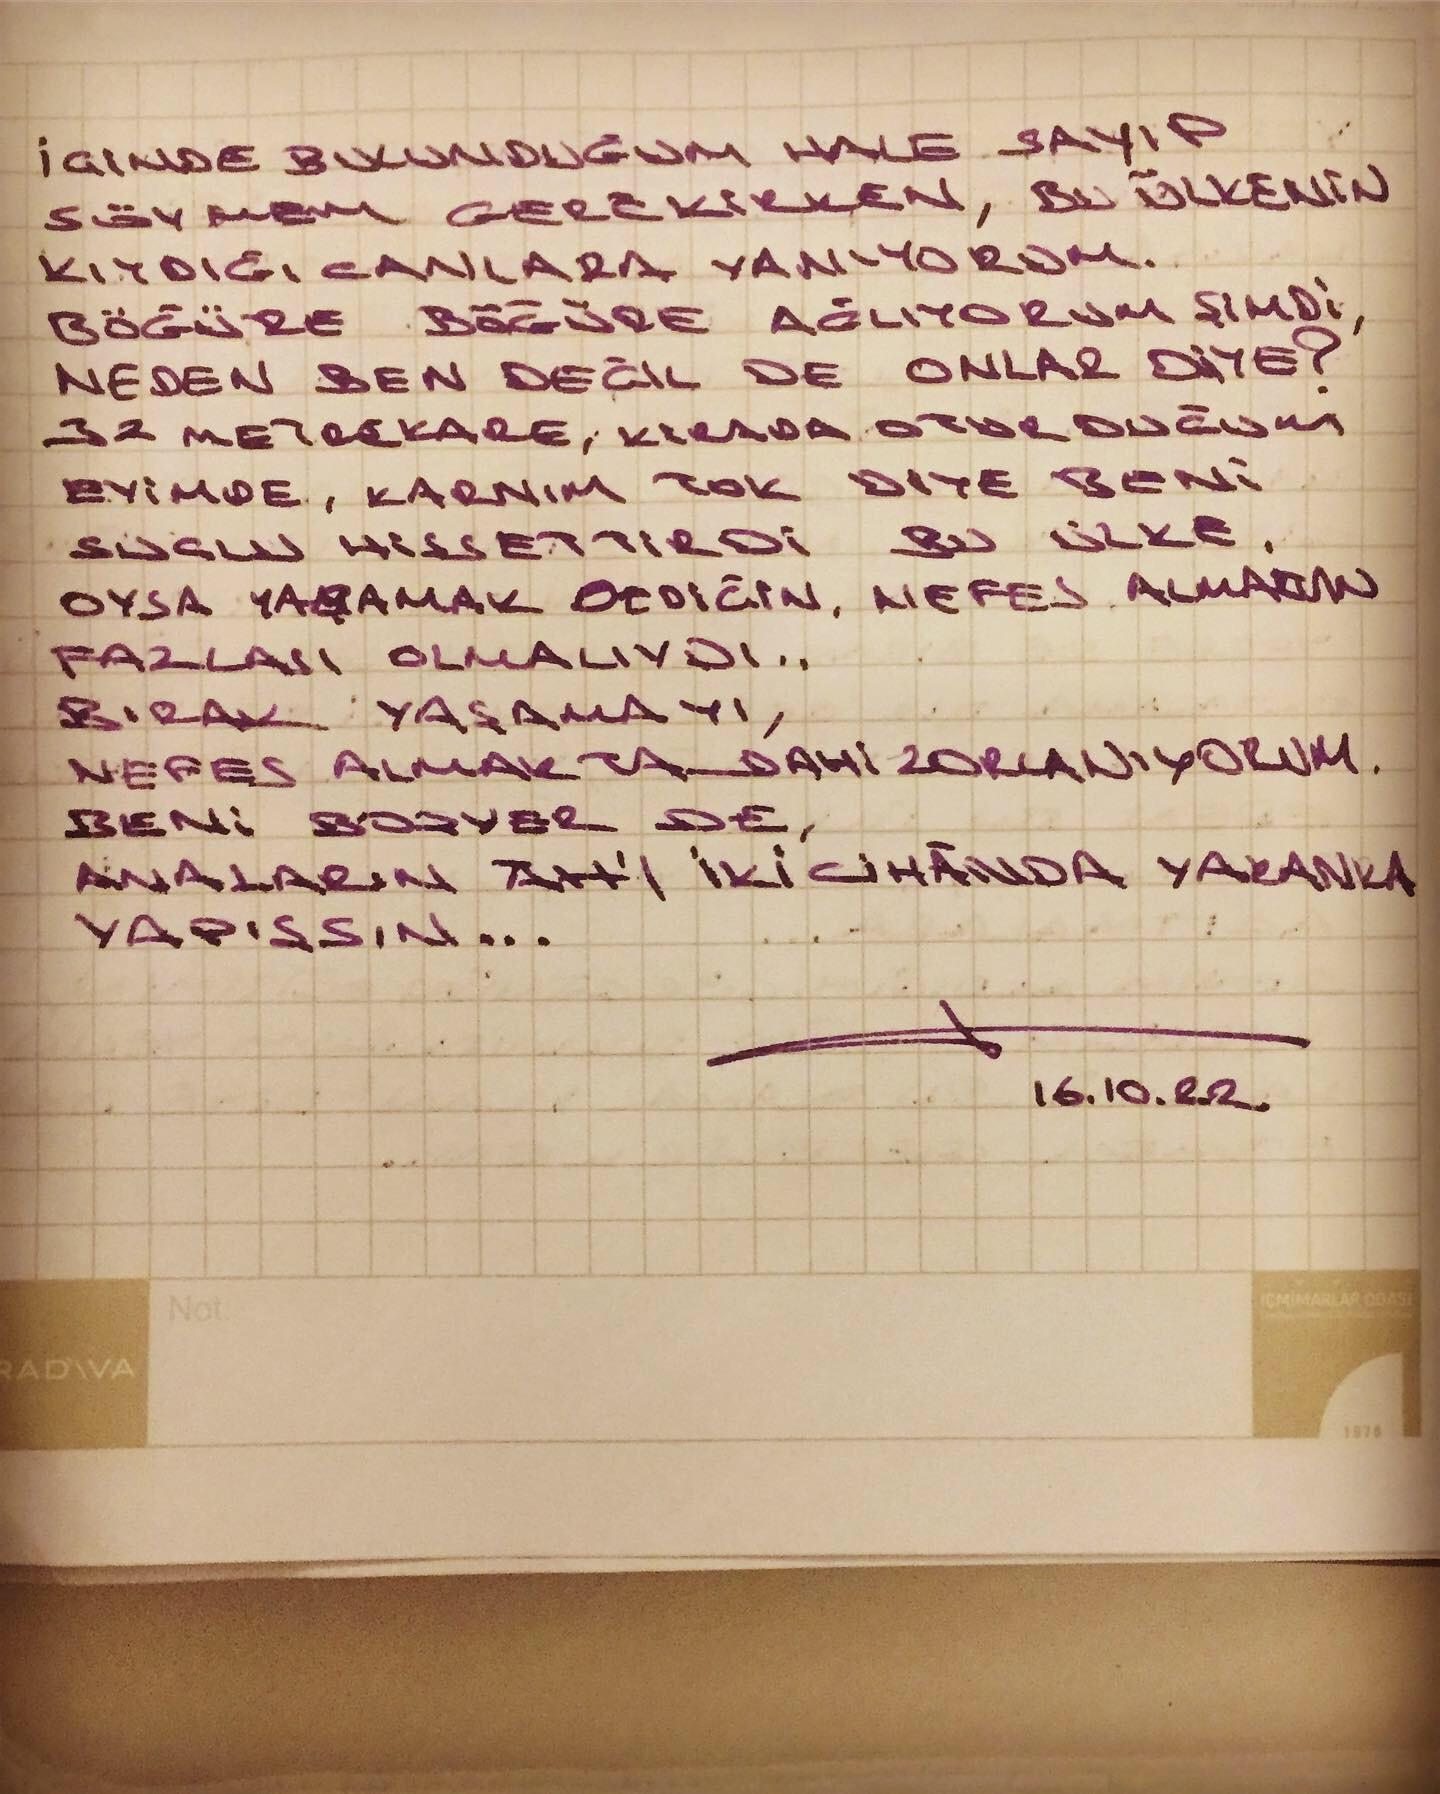 İÇINDE BULUNDUĞUM HALE SAYIP
SÖYMEM GEREKİRKEN, BU ÜLKENİN
KIYDIĞI CANLARA YANIYORUM.
BÖĞÜRE BÖĞÜRE AĞLIYORUM ŞİMDİ,
NEDEN BEN DEĞİL DE ONLAR DİYE?
32 METREKARE, KIRADA OTURDUĞUM
EVİMDE, KARNIM TOK DIYE BENİ
SUÇLU HİSSETTİRDİ BU ÜLKE.
OYSA YAŞAMAK DEDİĞİN, NEFES ALMADIN
FAZLASI OLMALIYDI..
BIRAK YAŞAMAYI,
NEFES ALMAKTA DAHİ ZORLANIYORUM.
BENİ BOŞVER DE,
ANALARIN AH'I İKİ CİHÂNDA YAKANKA
YAPIŞSIN...
16.10.22.
Not:
RADIVA
İÇMİMARLAR ODASI
1976